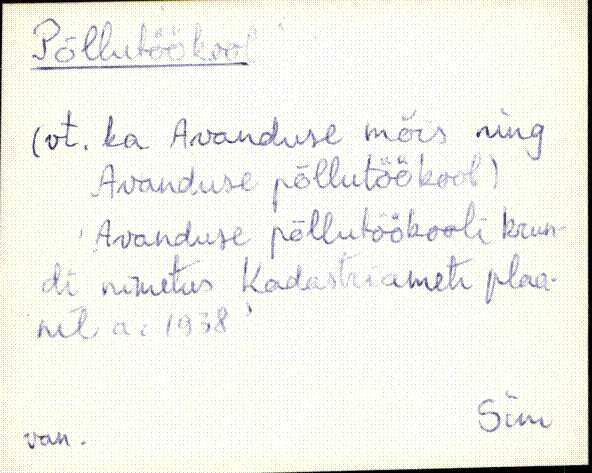 Põllutöökool
(vt. ka Avanduse mõis ning
Avanduse põllutöökool)
'Avanduse põllutöökooli krun-
di nimetus Kadastriameti plaa-
nil a. 1938'
Sim
van.